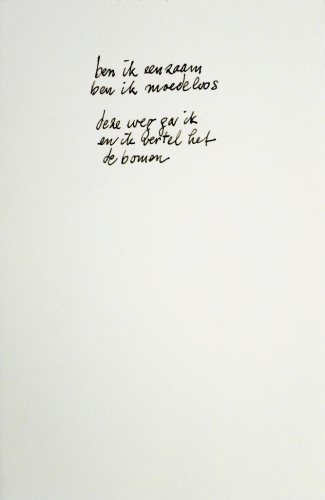 ben ik eenzaam
ben ik moedeloos
deze weg ga ik
en ik vertel het
de bomen